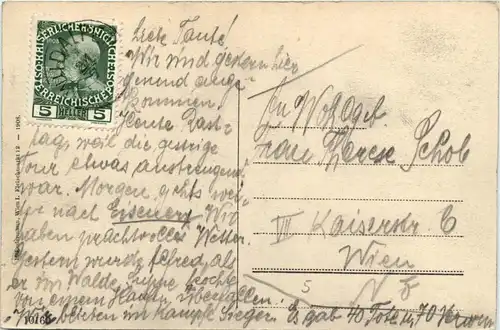 KAISERLICHE KÖNIGLICHE
ÖSTERREICHISCHE POST
5 HELLER 5
Liebe Tante!
Wir sind gestern hier
ange-
kommen.
Heute Rast-
tag, weil die gestrige
Tour etwas anstrengend
war. Morgen gehts wei-
ter nach Eisenerz. Wir
haben prachtvolles Wetter.
Gestern wurde Alfred, als
er im Walde Suppe kochte
von einem überfallen.
Wir blieben im Kampfe Sieger. Es gab 40 Tote u. 70 Verwun
An Wohlgeb.
Frau Therese Schob
Kaiserstr. 6
Wien
10166
1908.